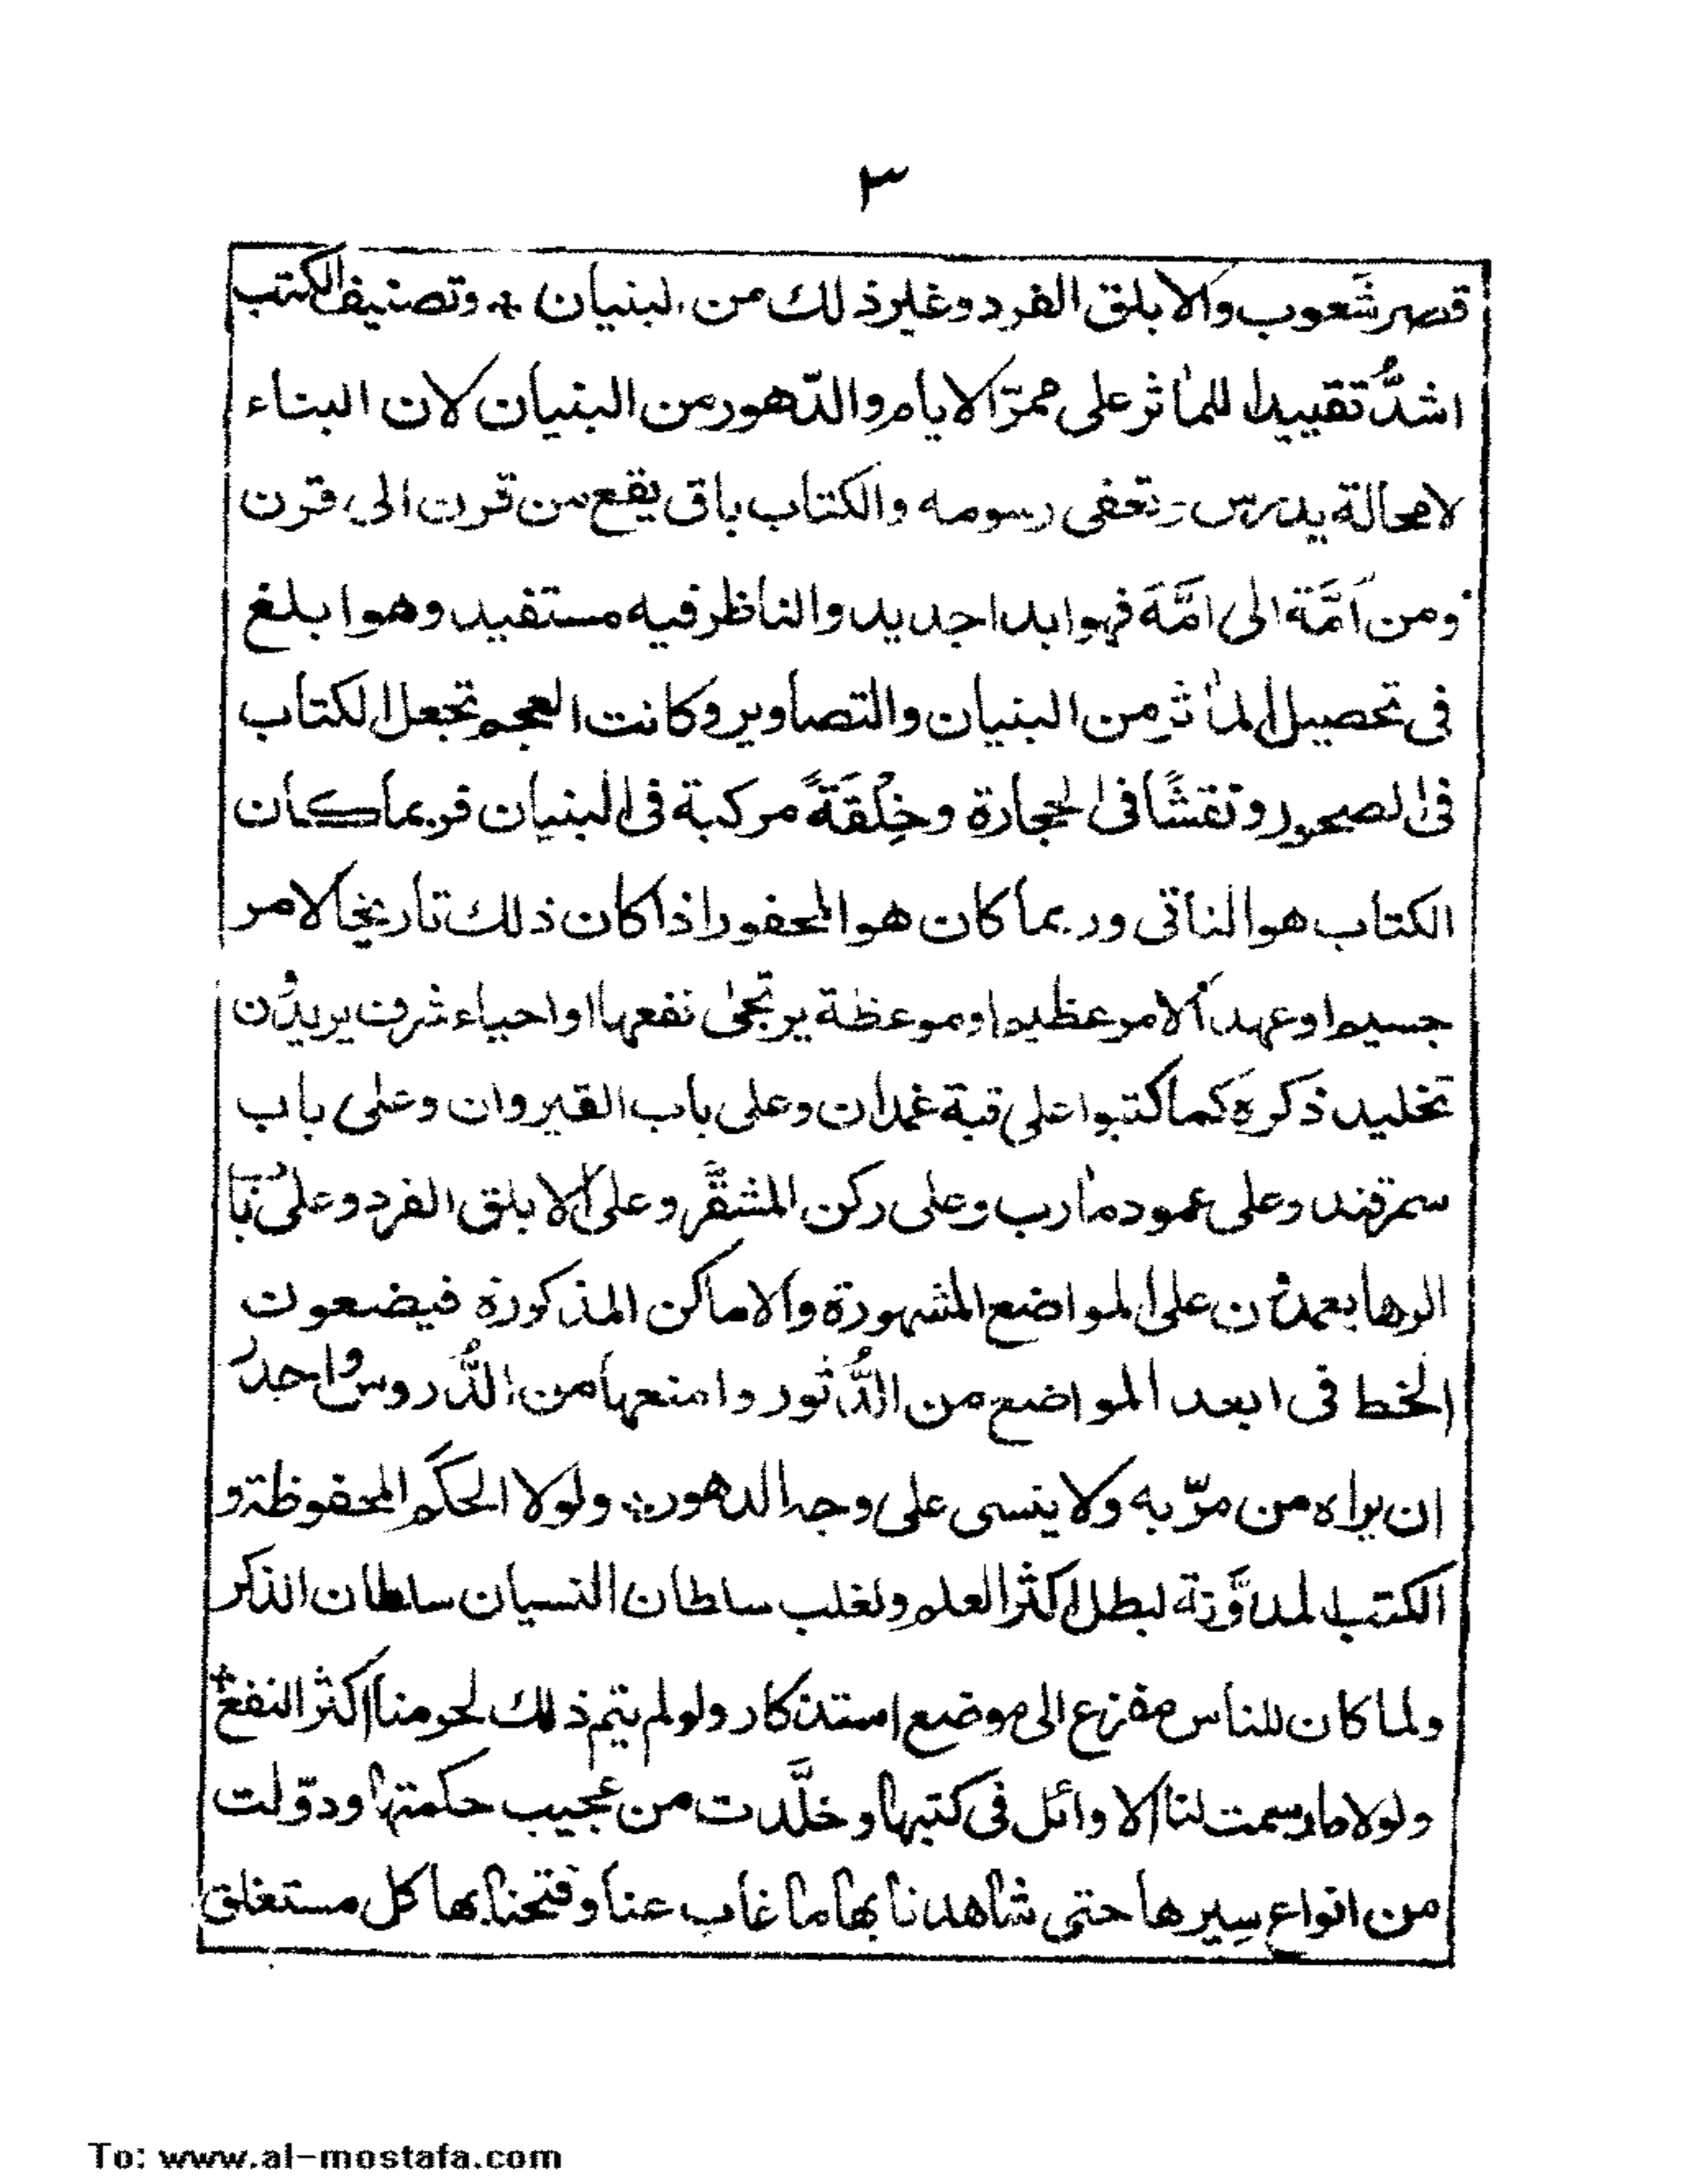 ٣
قصر شَعوب والابلق الفرد وغير ذلك من البنيان * وتصنيف الكتب
اشدُّ تقييدا للمآثر على ممرّ الايام والدّهور من البنيان لان البناء
لا محالة يدرس وتعفى رسومه والكتاب باق يقع من قرن الى قرن
ومن اَمَّة الى امَّةَ فهو ابدا جديد والناظر فيه مستفيد وهو ابلغ
فى تحصيل المآثر من البنيان والتصاوير وكانت العجم تجعل الكتاب
فى الصخور ونقشًا فى الحجارة وخِلْقَةً مركبة فى البنيان فربما كان
الكتاب هو الناتى وربما كان هو المحفور اذا كان ذلك تاريخا لامر
جسيم او عهداً لامر عظيم او موعظة يرتجىٰ نفعها او احياء شرف يريدُون
تخليد ذكره كما كتبوا على قبة غمدان وعلى باب القيروان وعلى باب
سمرقند وعلى عمود مأرب وعلى ركن المشقَّر وعلى الابلق الفرد وعلى باب
الرها يعمدون على المواضع المشهورة والاماكن المذكورة فيضعون
الخط فى ابعد المواضع من الدُّثور وامنعها من الدُّروس واجدر
ان يراه من مرّ به ولا ينسى على وجه الدهور * ولولا الحكَم المحفوظة و
الكتب المدوَّنة لبطل اكثر العلم ولغلب سلطان النسيان سلطان الذكر
ولما كان للناس مفزع الى موضع استذكار ولو لم يتم ذلك لحرمنا اكثر النفع *
ولولا ما رسمت لنا الاوائل فى كتبها وخلَّدت من عجيب حكمتها ودوّلت
من انواع سِيرها حتى شاهدنا بها ما غاب عنا وفتحنا بها كل مستغلق
To: www.al-mostafa.com